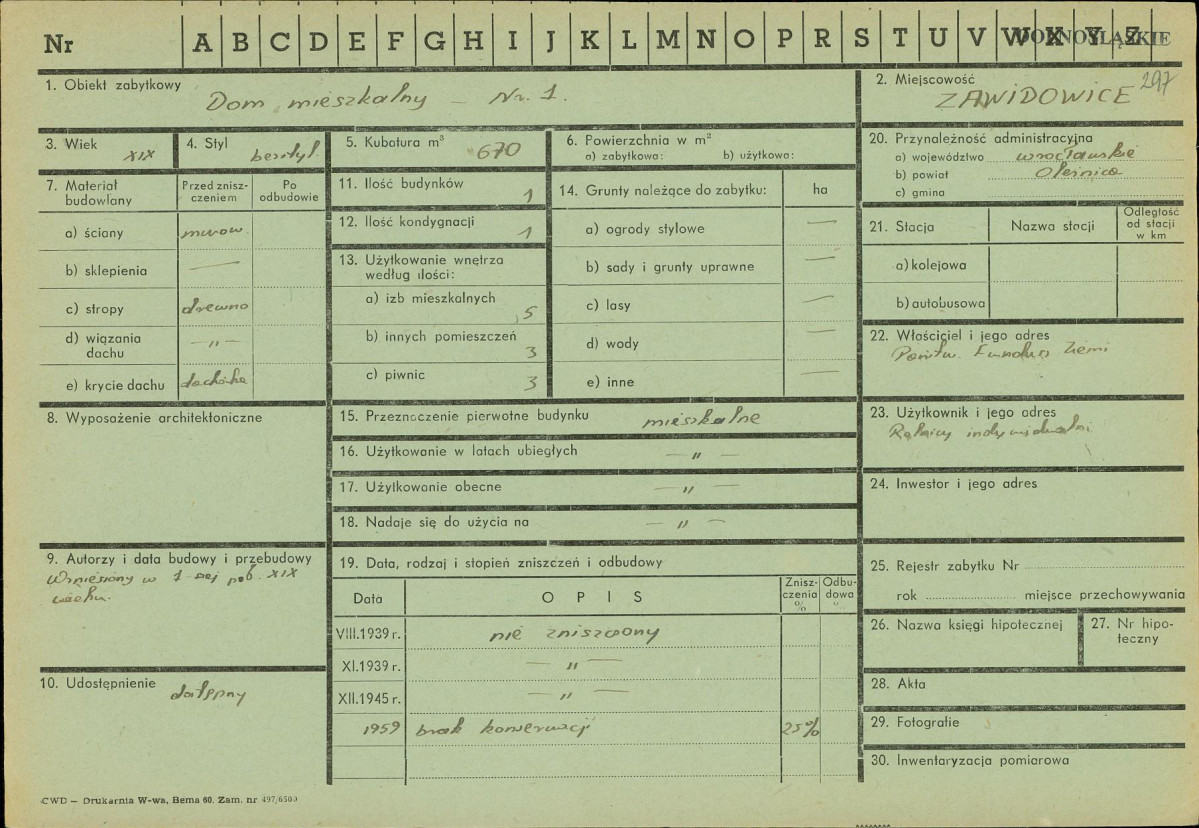 Nr A B C D E F G H I J K L M N O P R S T U V W X Y Z
1. Obiekt zabytkowy Dom mieszkalny – Nr. 1.
2. Miejscowość 297
ZAWIDOWICE
3. Wiek XIX
4. Styl bezstyl.
5. Kubatura m³ 670
6. Powierzchnia w m²
a) zabytkowa: b) użytkowa:
20. Przynależność administracyjna
a) województwo wrocławskie
b) powiat Oleśnica
c) gmina
7. Materiał budowlany
Przed znisz-
czeniem
Po
odbudowie
a) ściany murow.
b) sklepienia —
c) stropy drewno
d) wiązania
dachu –„–
e) krycie dachu dachówka
11. Ilość budynków 1
12. Ilość kondygnacji 1
13. Użytkowanie wnętrza
według ilości:
a) izb mieszkalnych 5
b) innych pomieszczeń 3
c) piwnic 3
14. Grunty należące do zabytku: ha
a) ogrody stylowe —
b) sady i grunty uprawne —
c) lasy —
d) wody —
e) inne —
21. Stacja Nazwa stacji
Odległość
od stacji
w km
a) kolejowa
b) autobusowa
22. Właściciel i jego adres
Państw. Fundusz Ziemi
8. Wyposażenie architektoniczne
15. Przeznaczenie pierwotne budynku mieszkalne
16. Użytkowanie w latach ubiegłych — „ —
17. Użytkowanie obecne — „ —
18. Nadaje się do użycia na — „ —
23. Użytkownik i jego adres
Rolnicy indywidualni
24. Inwestor i jego adres
9. Autorzy i data budowy i przebudowy
Wzniesiony w 1-szej poł. XIX
wieku.
19. Data, rodzaj i stopień zniszczeń i odbudowy
Data OPIS
Znisz-
czenia
%
Odbu-
dowa
VIII.1939 r. nie zniszczony
XI.1939 r. — „ —
XII.1945 r. — „ —
1959 brak konserwacji 25%
25. Rejestr zabytku Nr
rok miejsce przechowywania
26. Nazwa księgi hipotecznej
27. Nr hipo-
teczny
10. Udostępnienie dostępny
28. Akta
29. Fotografie
30. Inwentaryzacja pomiarowa
CWD – Drukarnia W-wa, Bema 60. Zam. nr 497/6500